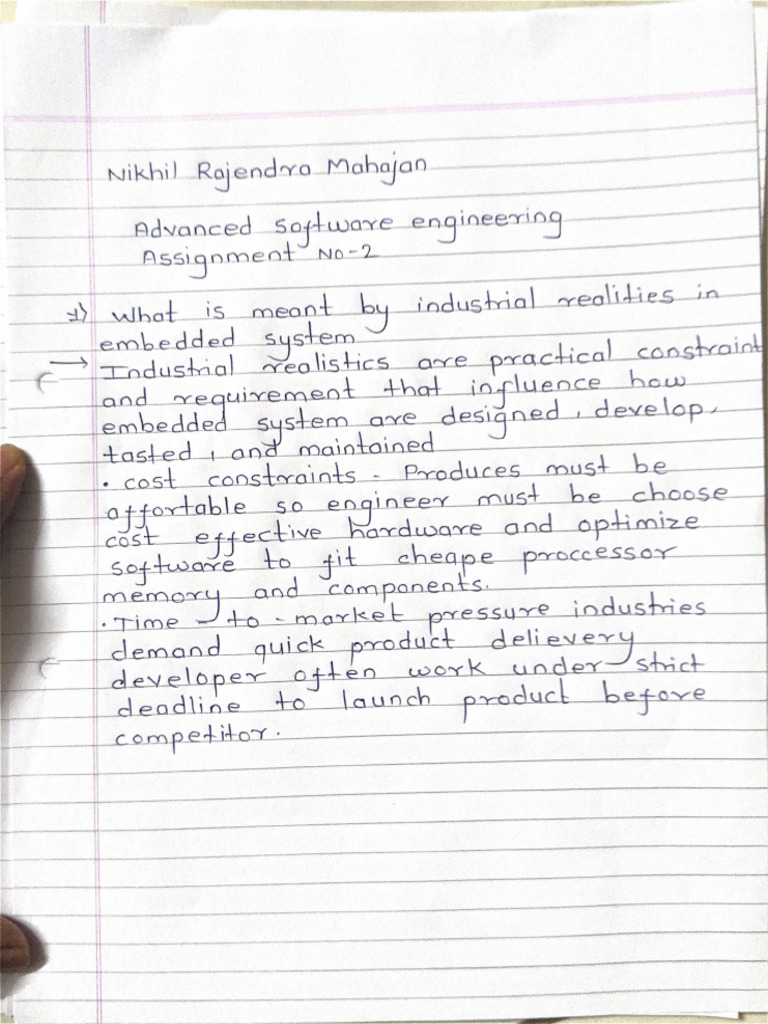 Nikhil Rajendra Mahajan
Advanced software engineering
Assignment No-2
1) What is meant by industrial realities in
embedded system
→ Industrial realistics are practical constraint
and requirement that influence how
embedded system are designed, develop,
tasted, and maintained
• cost constraints - Produces must be
affortable so engineer must be choose
cost effective hardware and optimize
software to fit cheape proccessor
memory and components.
• Time - to - market pressure industries
demand quick product delievery
developer often work under strict
deadline to launch product before
competitor.